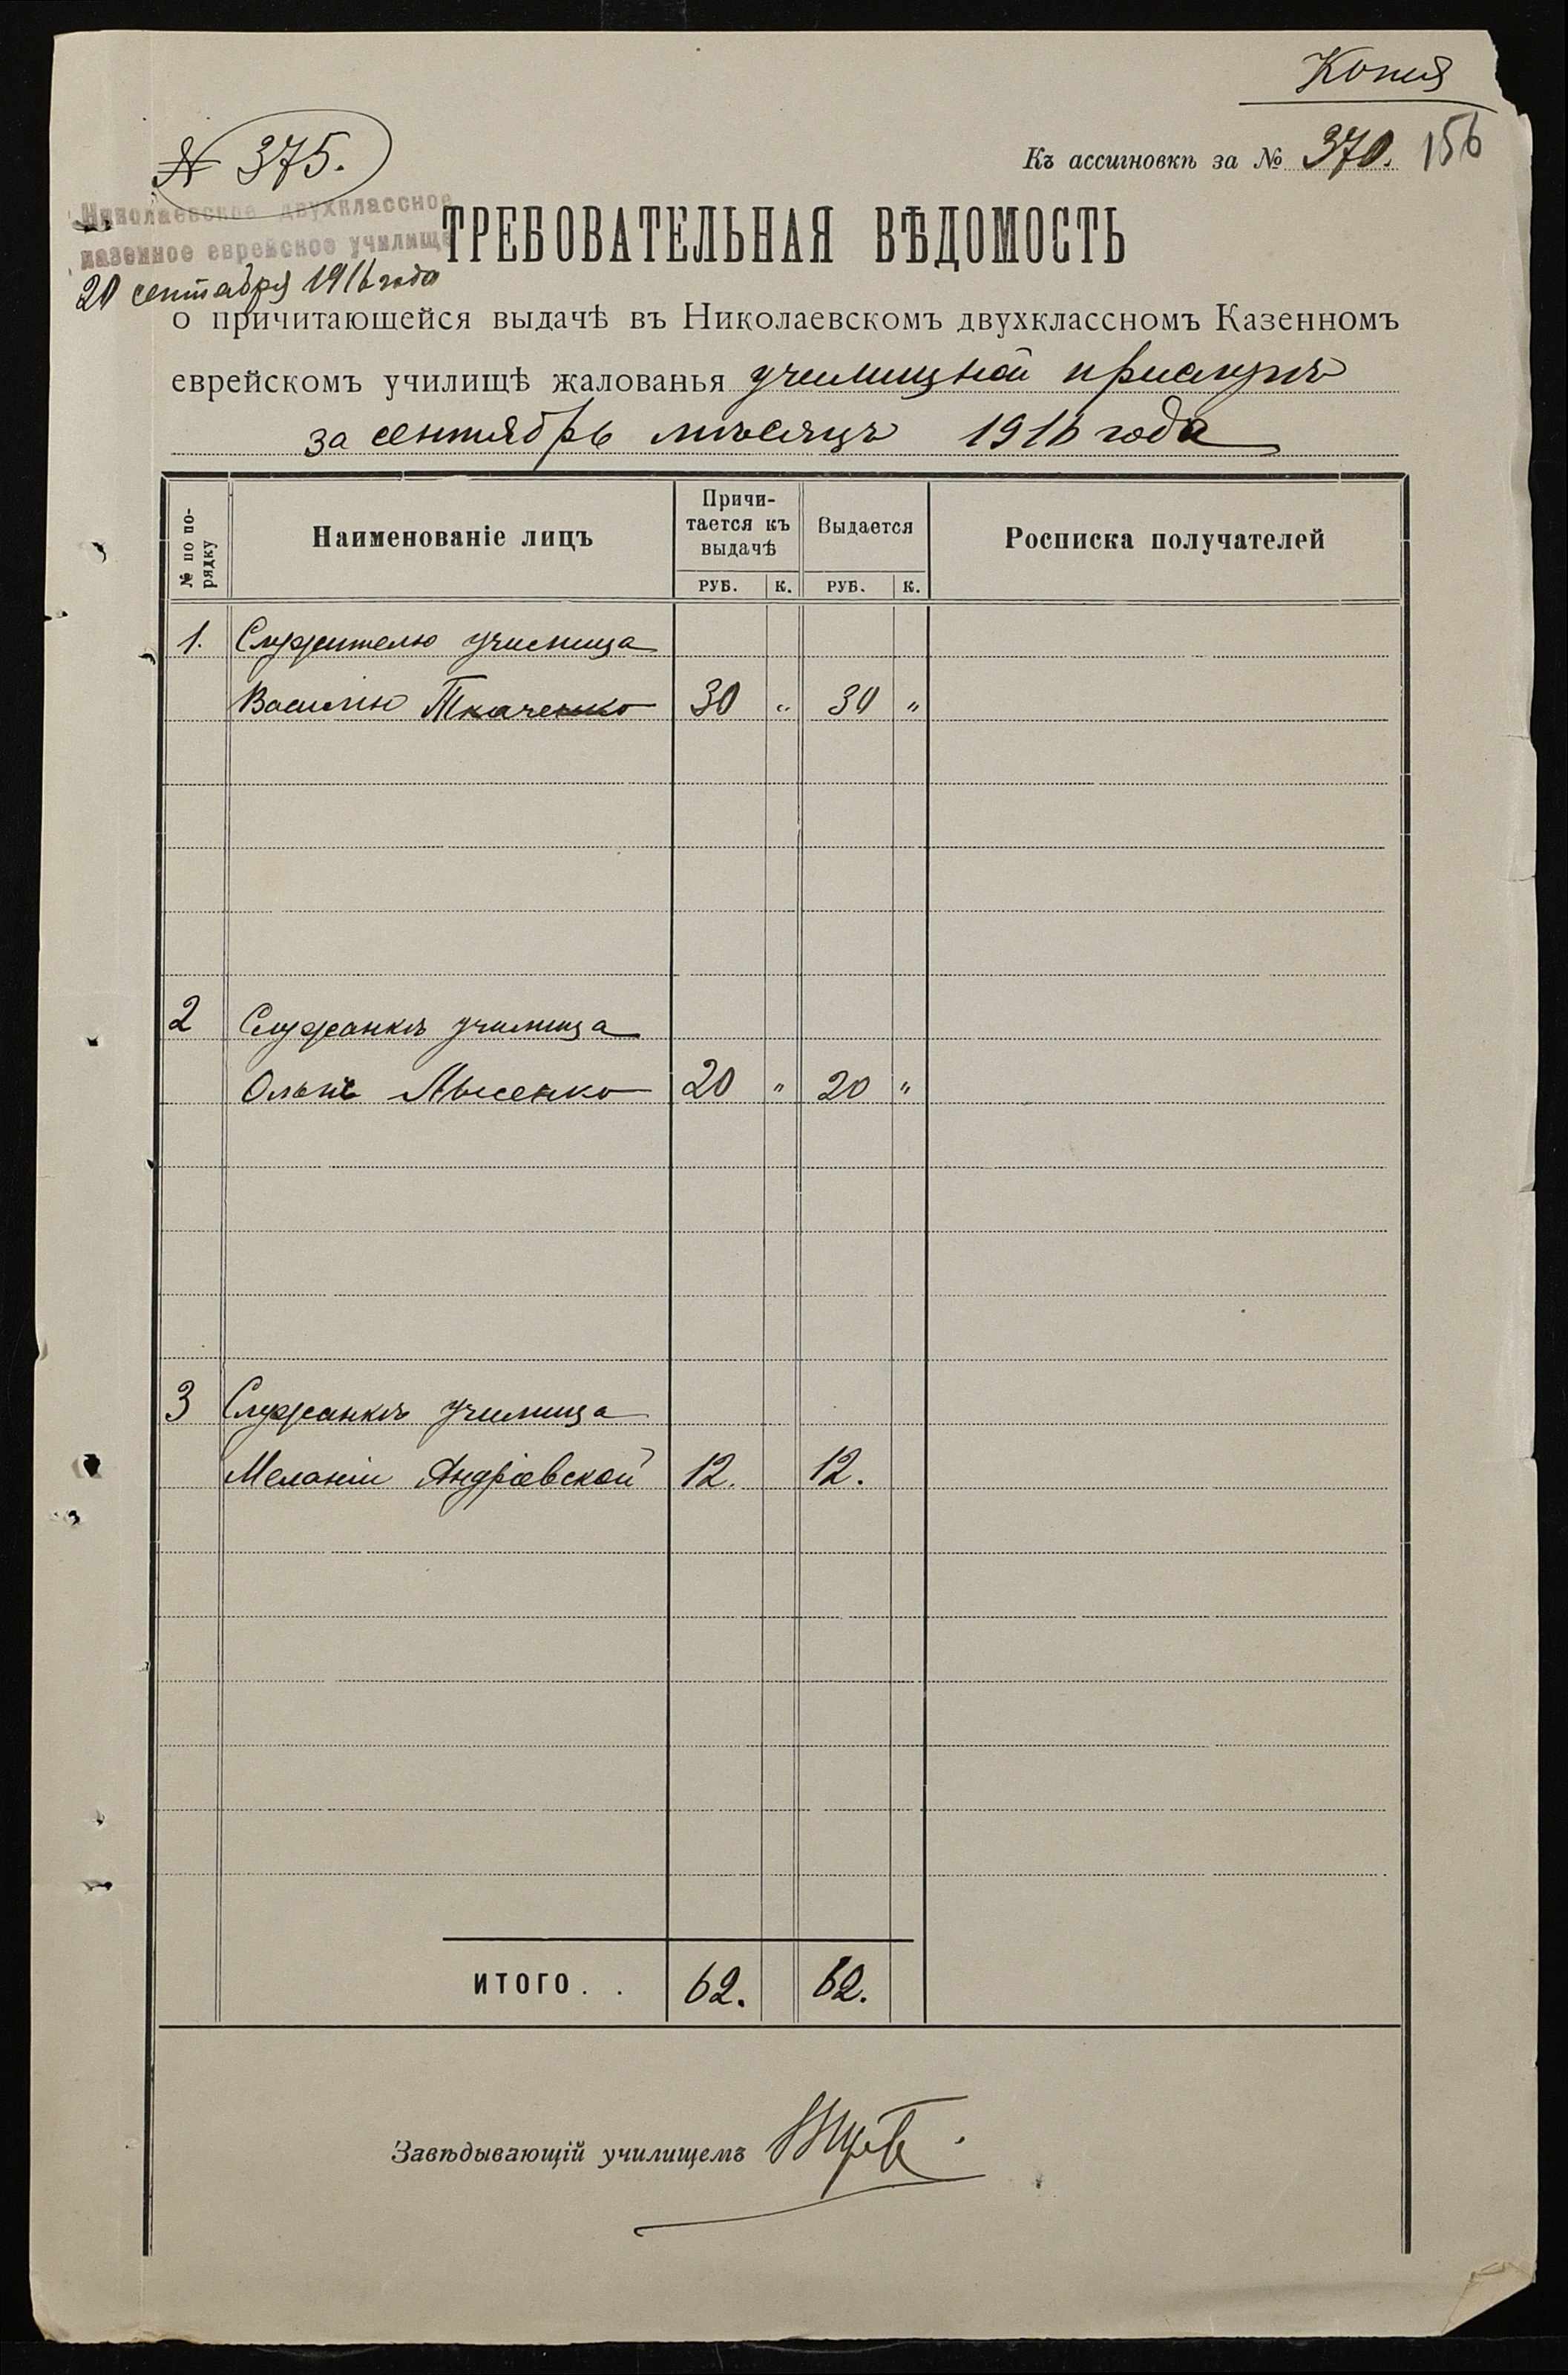 Копія
№ 375.
Къ ассигновкѣ за № 370. 156
Николаевское двухклассное
казенное еврейское училище
20 сентября 1916 года
ТРЕБОВАТЕЛЬНАЯ ВѢДОМОСТЬ
о причитающейся выдачѣ въ Николаевскомъ двухклассномъ Казенномъ
еврейскомъ училищѣ жалованья училищной прислугѣ
за сентябрь мѣсяцъ 1916 года
№ по по-
рядку
Наименованіе лицъ
Причи-
тается къ
выдачѣ
Выдается
Росписка получателей
РУБ. К. РУБ. К.
1. Служителю училища
Василію Ткаченко 30 " 30 "
2 Служанкѣ училища
Ольгѣ Лысенко 20 " 20 "
3 Служанкѣ училища
Меланіи Андріевской 12. 12.
ИТОГО . . 62. 62.
Завѣдывающій училищемъ